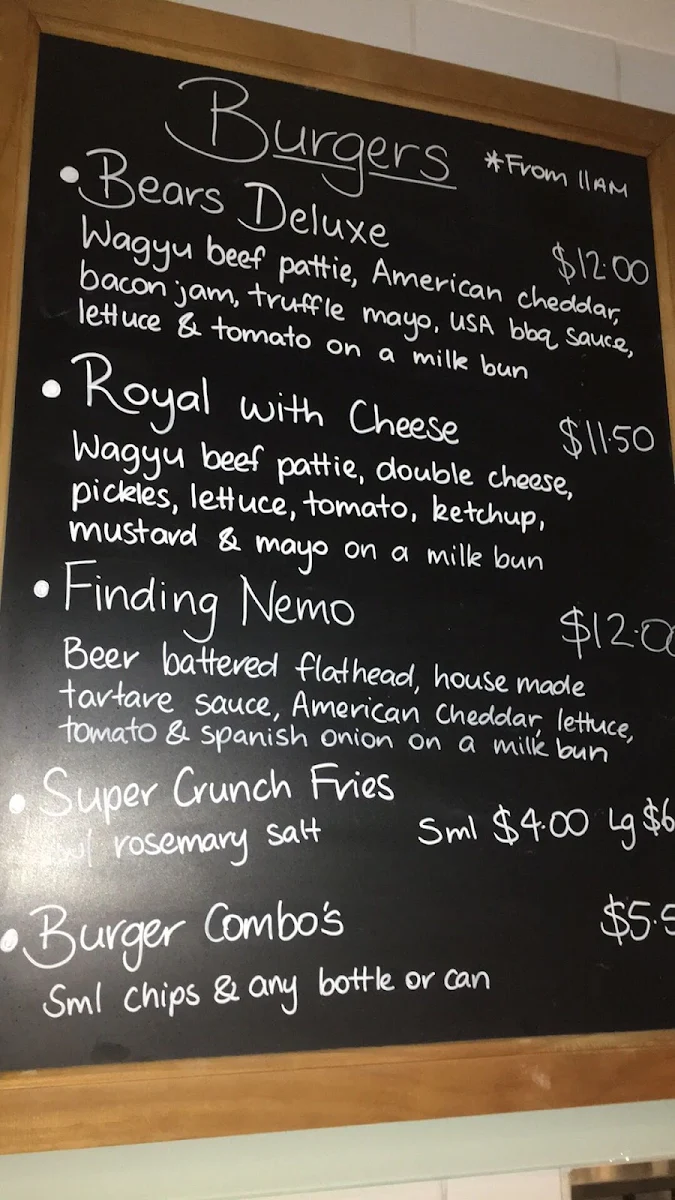 Burgers *From 11AM
• Bears Deluxe $12.00
Wagyu beef pattie, American cheddar,
bacon jam, truffle mayo, USA bbq sauce,
lettuce & tomato on a milk bun
• Royal with Cheese $11.50
Wagyu beef pattie, double cheese,
pickles, lettuce, tomato, ketchup,
mustard & mayo on a milk bun
• Finding Nemo $12.00
Beer battered flathead, house made
tartare sauce, American Cheddar, lettuce,
tomato & spanish onion on a milk bun
• Super Crunch Fries
rosemary salt Sml $4.00 Lg $6
• Burger Combo's $5.5
Sml chips & any bottle or can